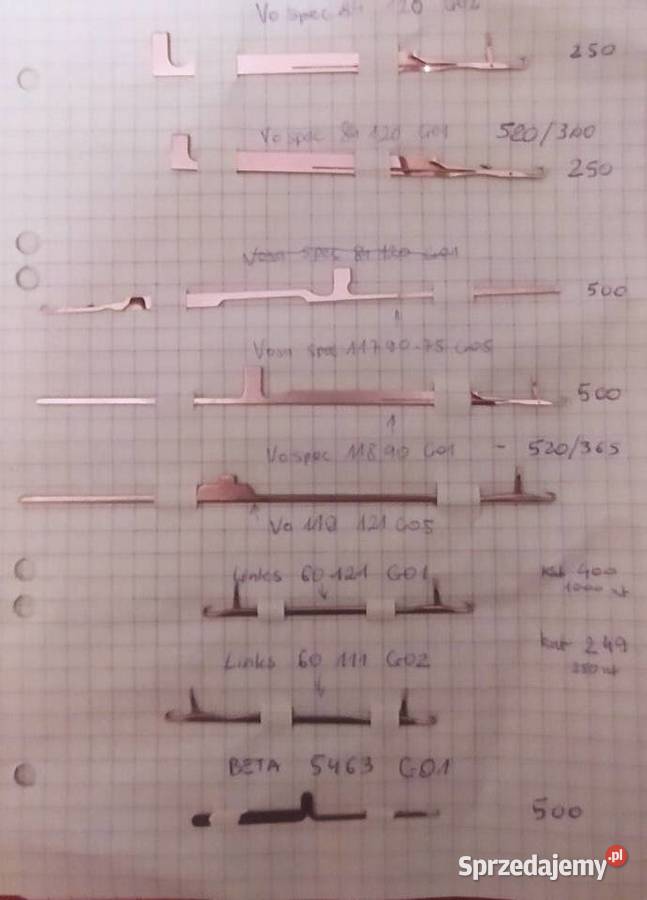 Vo spec 84 120 G02
250
Vo spec 84 120 G01 520/340
250
Vosa spec 84 120 G01
500
Vosa spec 117 90-75 G05
500
Vo spec 118 90 G01 - 520/365
Vo 118 121 G05
Links 60 121 G01
400
1000
Links 60 111 G02
249
BETA 5463 G01
500
Sprzedajemy.pl